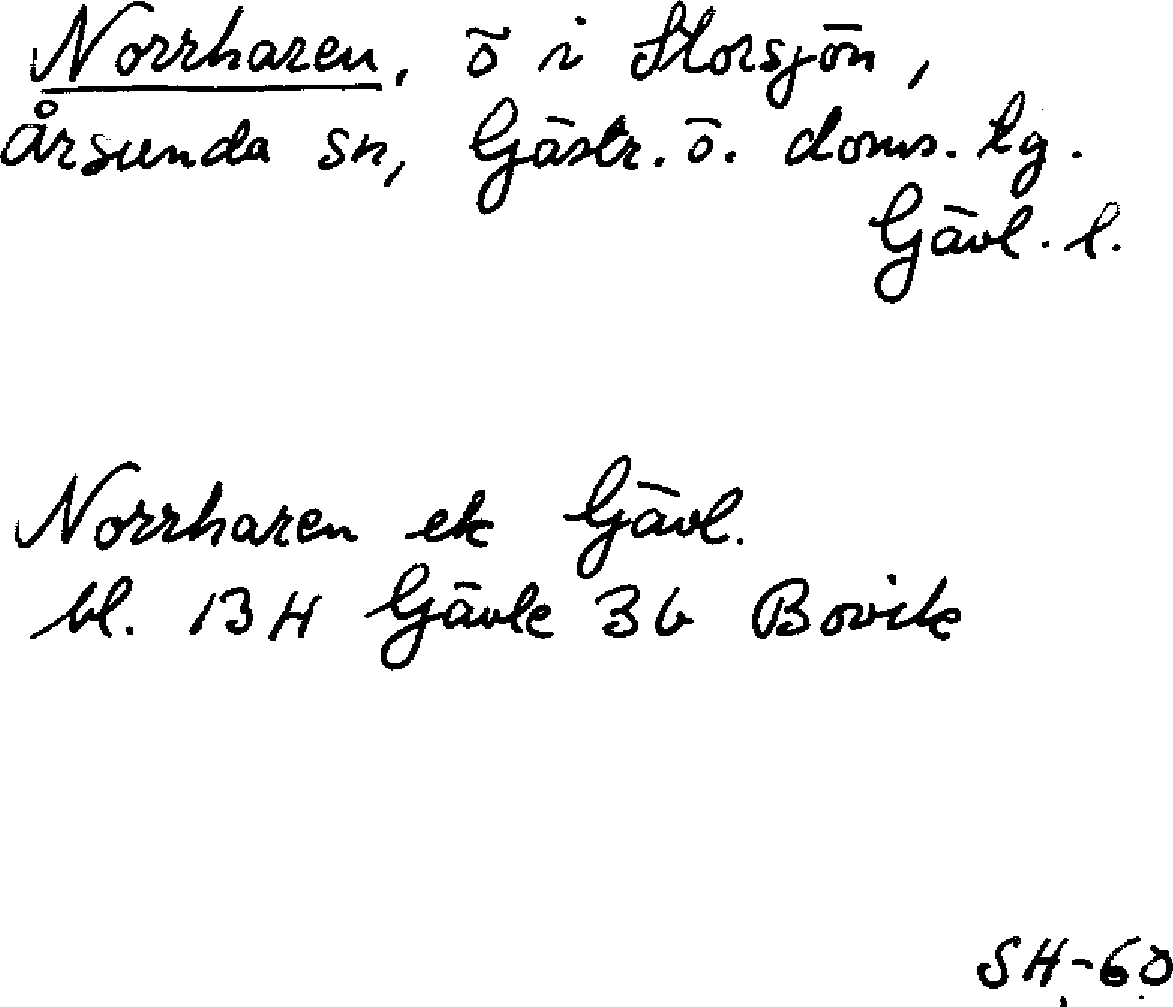 Norrharen, ö i Storsjön,
Årsunda sn, Gästr. ö. doms. tg.
Gävl. l.
Norrharen ek Gävl.
bl. 13 H Gävle 3b Bovik
SH-60